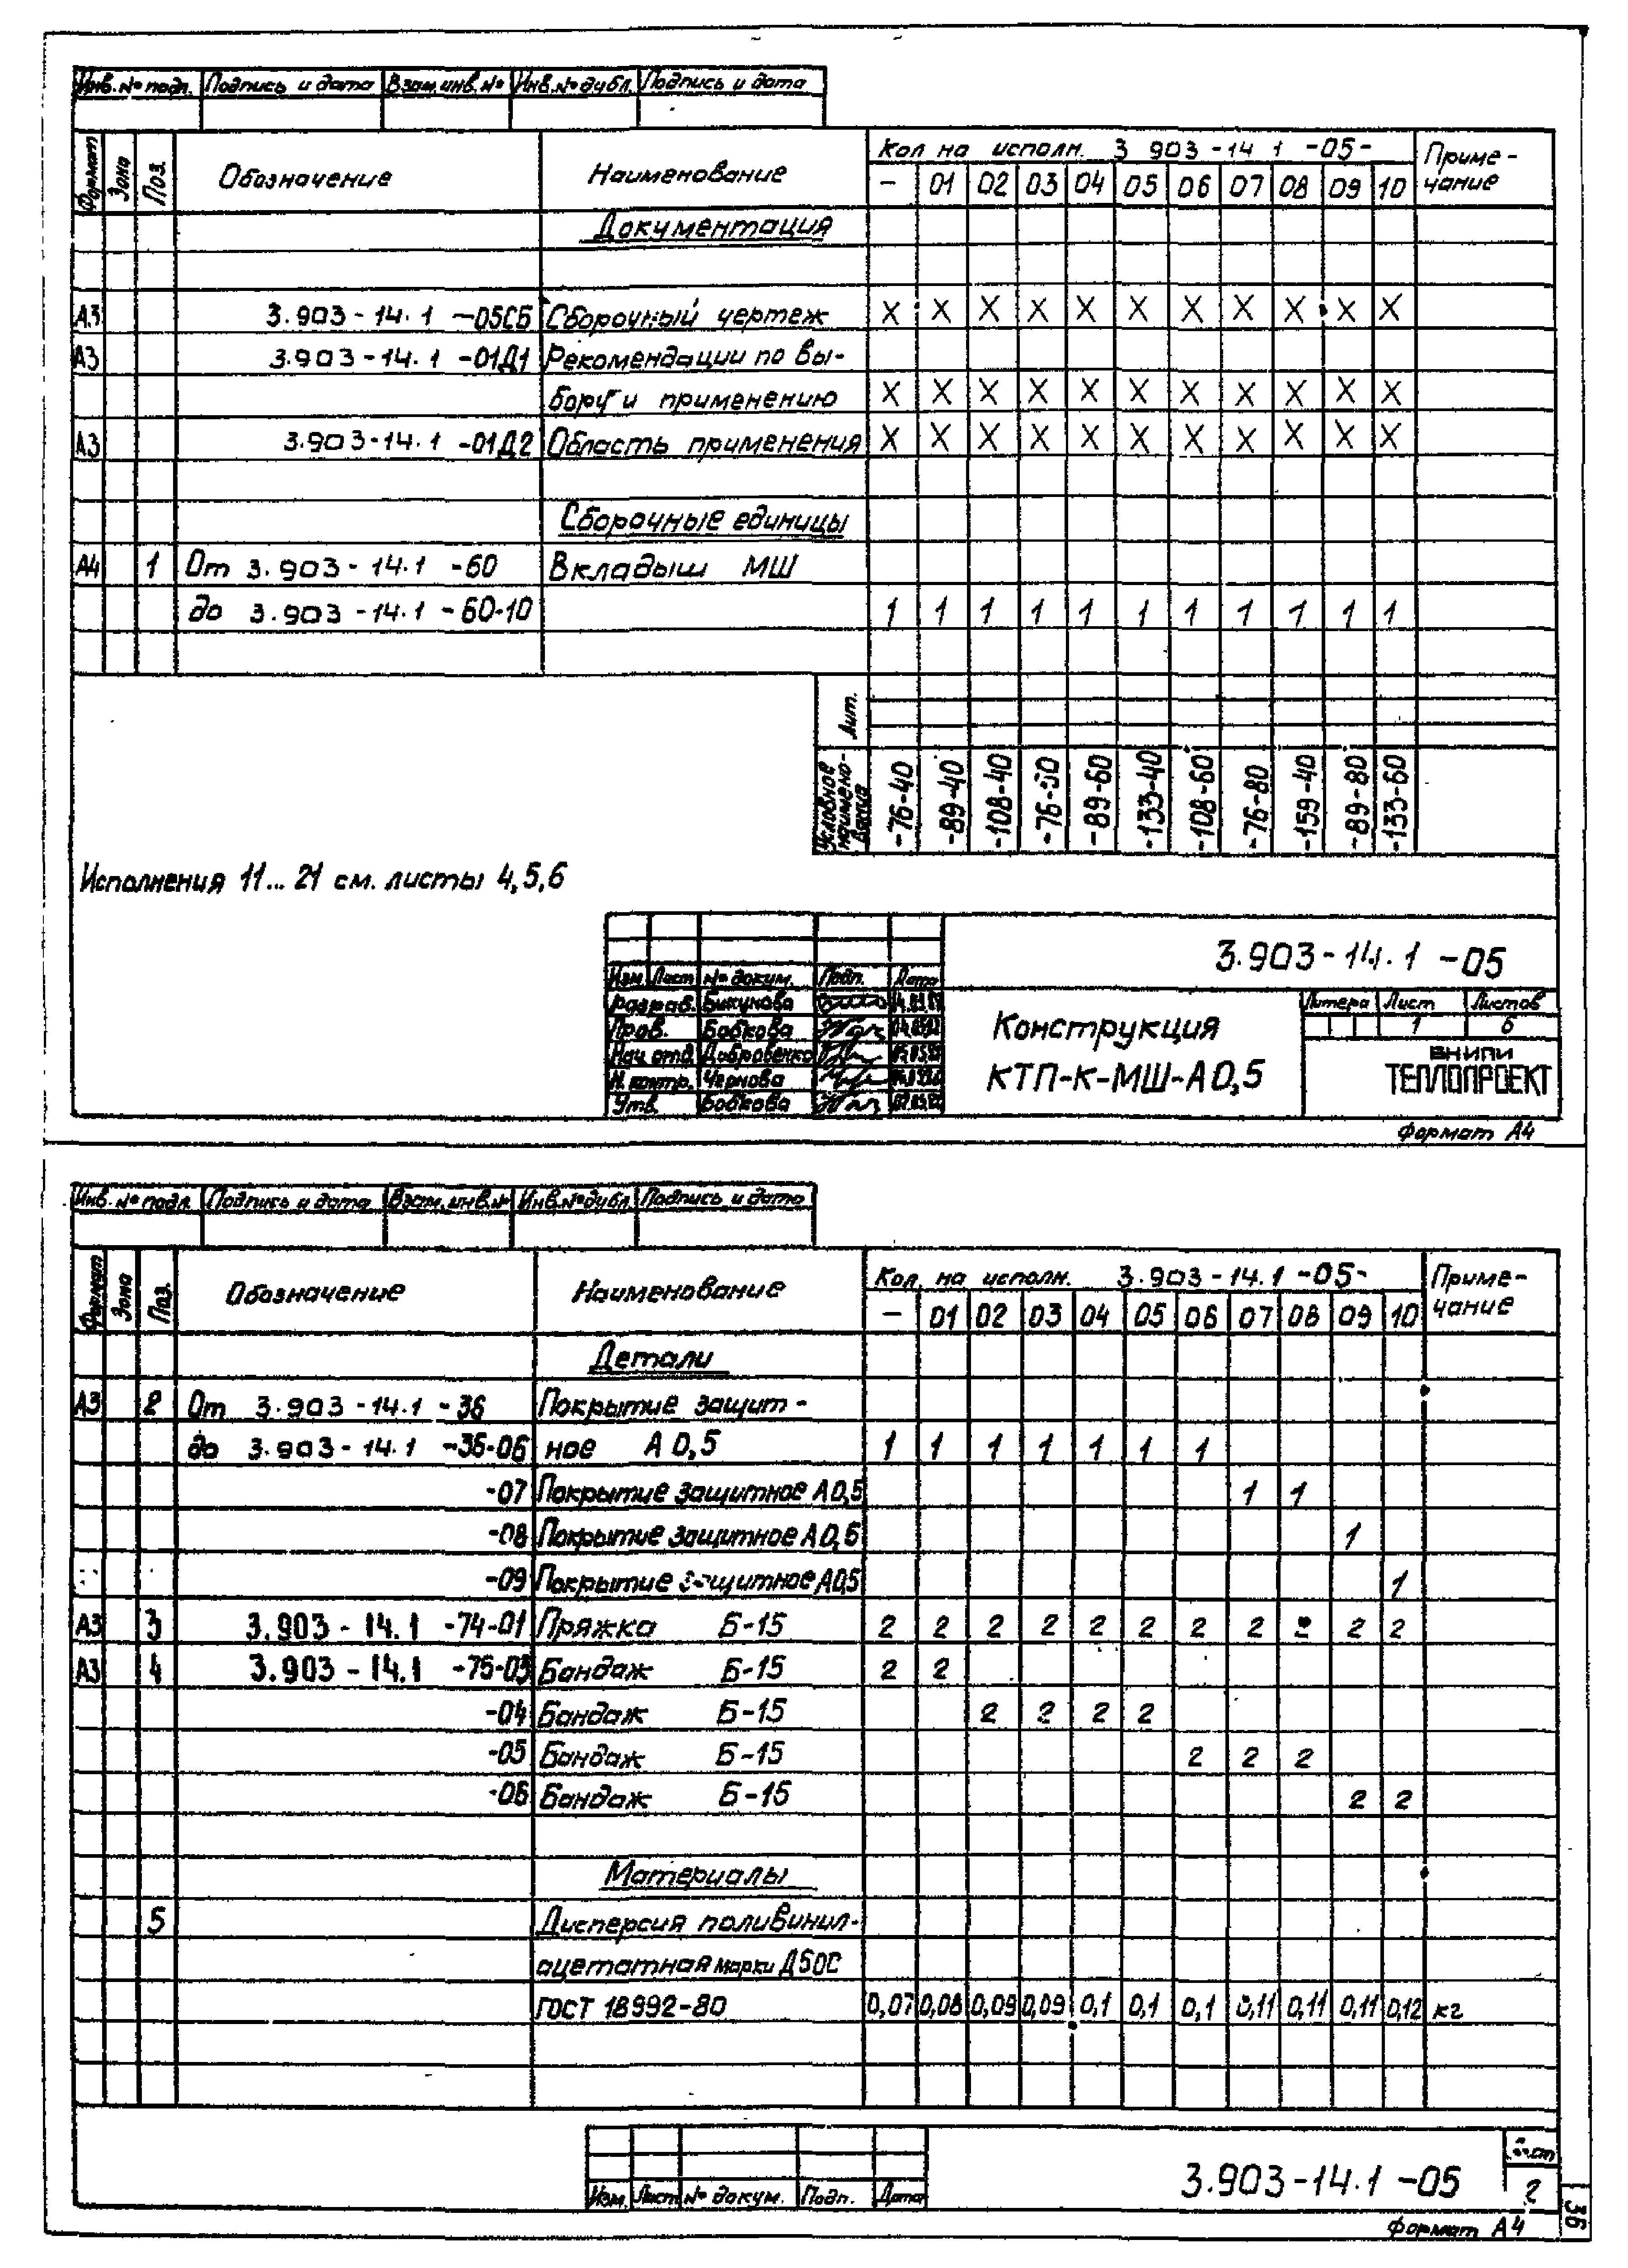 Инв.№ подл. Подпись и дата Взам.инв.№ Инв.№ дубл. Подпись и дата
Формат Зона Поз. Обозначение Наименование Кол на исполн. 3 903-14 1 -05- Приме-
чание
- 01 02 03 04 05 06 07 08 09 10
Документация
А3 3.903-14.1 -05СБ Сборочный чертеж X X X X X X X X X X X
А3 3.903-14.1 -01Д1 Рекомендации по вы-
бору и применению X X X X X X X X X X X
А3 3.903-14.1 -01Д2 Область применения X X X X X X X X X X X
Сборочные единицы
А4 1 От 3.903-14.1 -60 Вкладыш МШ
до 3.903-14.1 -60-10 1 1 1 1 1 1 1 1 1 1 1
Лит.
Условное наимено-
-76-40 -89-40 -108-40 -89-60 -133-40 -108-60 -76-80 -159-40 -89-80 -133-60
Исполнения 11... 21 см. листы 4,5,6
3.903-14.1 -05
Изм Лист № докум. Подп. Дата
Разраб. Бикунова
Пров. Бобкова
Нач отд. Добровенко
Н. контр. Чернова
Утв. Бобкова
Конструкция
КТП-К-МШ-А0,5
Литера Лист Листов
1 6
ВНИПИ
ТЕПЛОПРОЕКТ
Формат А4
Инв.№ подл. Подпись и дата Взам.инв.№ Инв.№дубл. Подпись и дата
Формат Зона Поз. Обозначение Наименование Кол. на исполн. 3.903-14.1 -05- Приме-
чание
- 01 02 03 04 05 06 07 08 09 10
Детали
А3 2 От 3.903-14.1 -36 Покрытие защит-
до 3.903-14.1 -36-06 ное А 0,5 1 1 1 1 1 1 1
-07 Покрытие защитное А 0,5 1 1
-08 Покрытие защитное А 0,5 1
-09 Покрытие защитное А0,5 1
А3 3 3.903-14.1 -74-01 Пряжка Б-15 2 2 2 2 2 2 2 2 2 2
А3 4 3.903-14.1 -75-03 Бандаж Б-15 2 2
-04 Бандаж Б-15 2 2 2 2
-05 Бандаж Б-15 2 2 2
-06 Бандаж Б-15 2 2
Материалы
5 Дисперсия поливинил-
ацетатная марки Д50С
ГОСТ 18992-80 0,07 0,08 0,09 0,09 0,1 0,1 0,1 0,11 0,11 0,11 0,12 кг
Изм. Лист № докум. Подп. Дата
3.903-14.1 -05
Лист
2
36
Формат А4